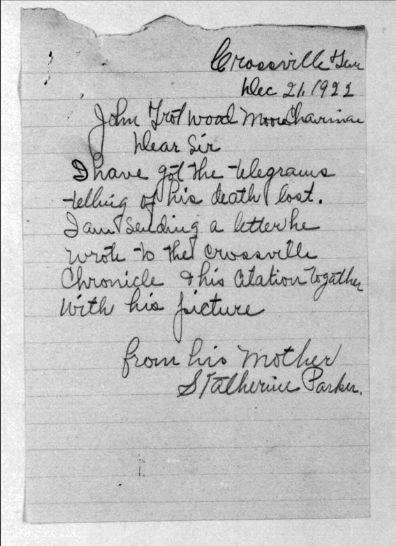 Crossville Ten
Dec 21, 1922
John Trotwood Moore Chairman
Dear Sir
I have got the telegrams
telling of his death lost.
I am sending a letter he
wrote to the Crossville
Chronicle & his Citation togather
with his picture
from his Mother
Parker.